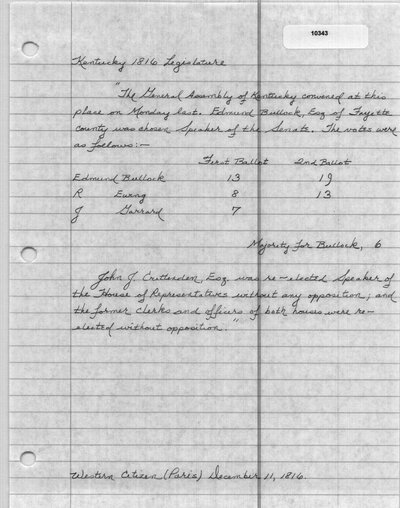 10343
Kentucky 1816 Legislature
"The General Assembly of Kentucky convened at this
place on Monday last. Edmund Bullock, Esq of Fayette
County was chosen Speaker of the Senate. The votes were
as follows:—
First Ballot 2nd Ballot
Edmund Bullock 13 19
R Ewing 8 13
J Garrard 7
Majority for Bullock, 6
John J. Crittenden, Esq. was re-elected Speaker of
the House of Representatives without any opposition; and
the former clerks and officers of both houses were re-
elected without opposition."
Western Citizen (Paris) December 11, 1816.